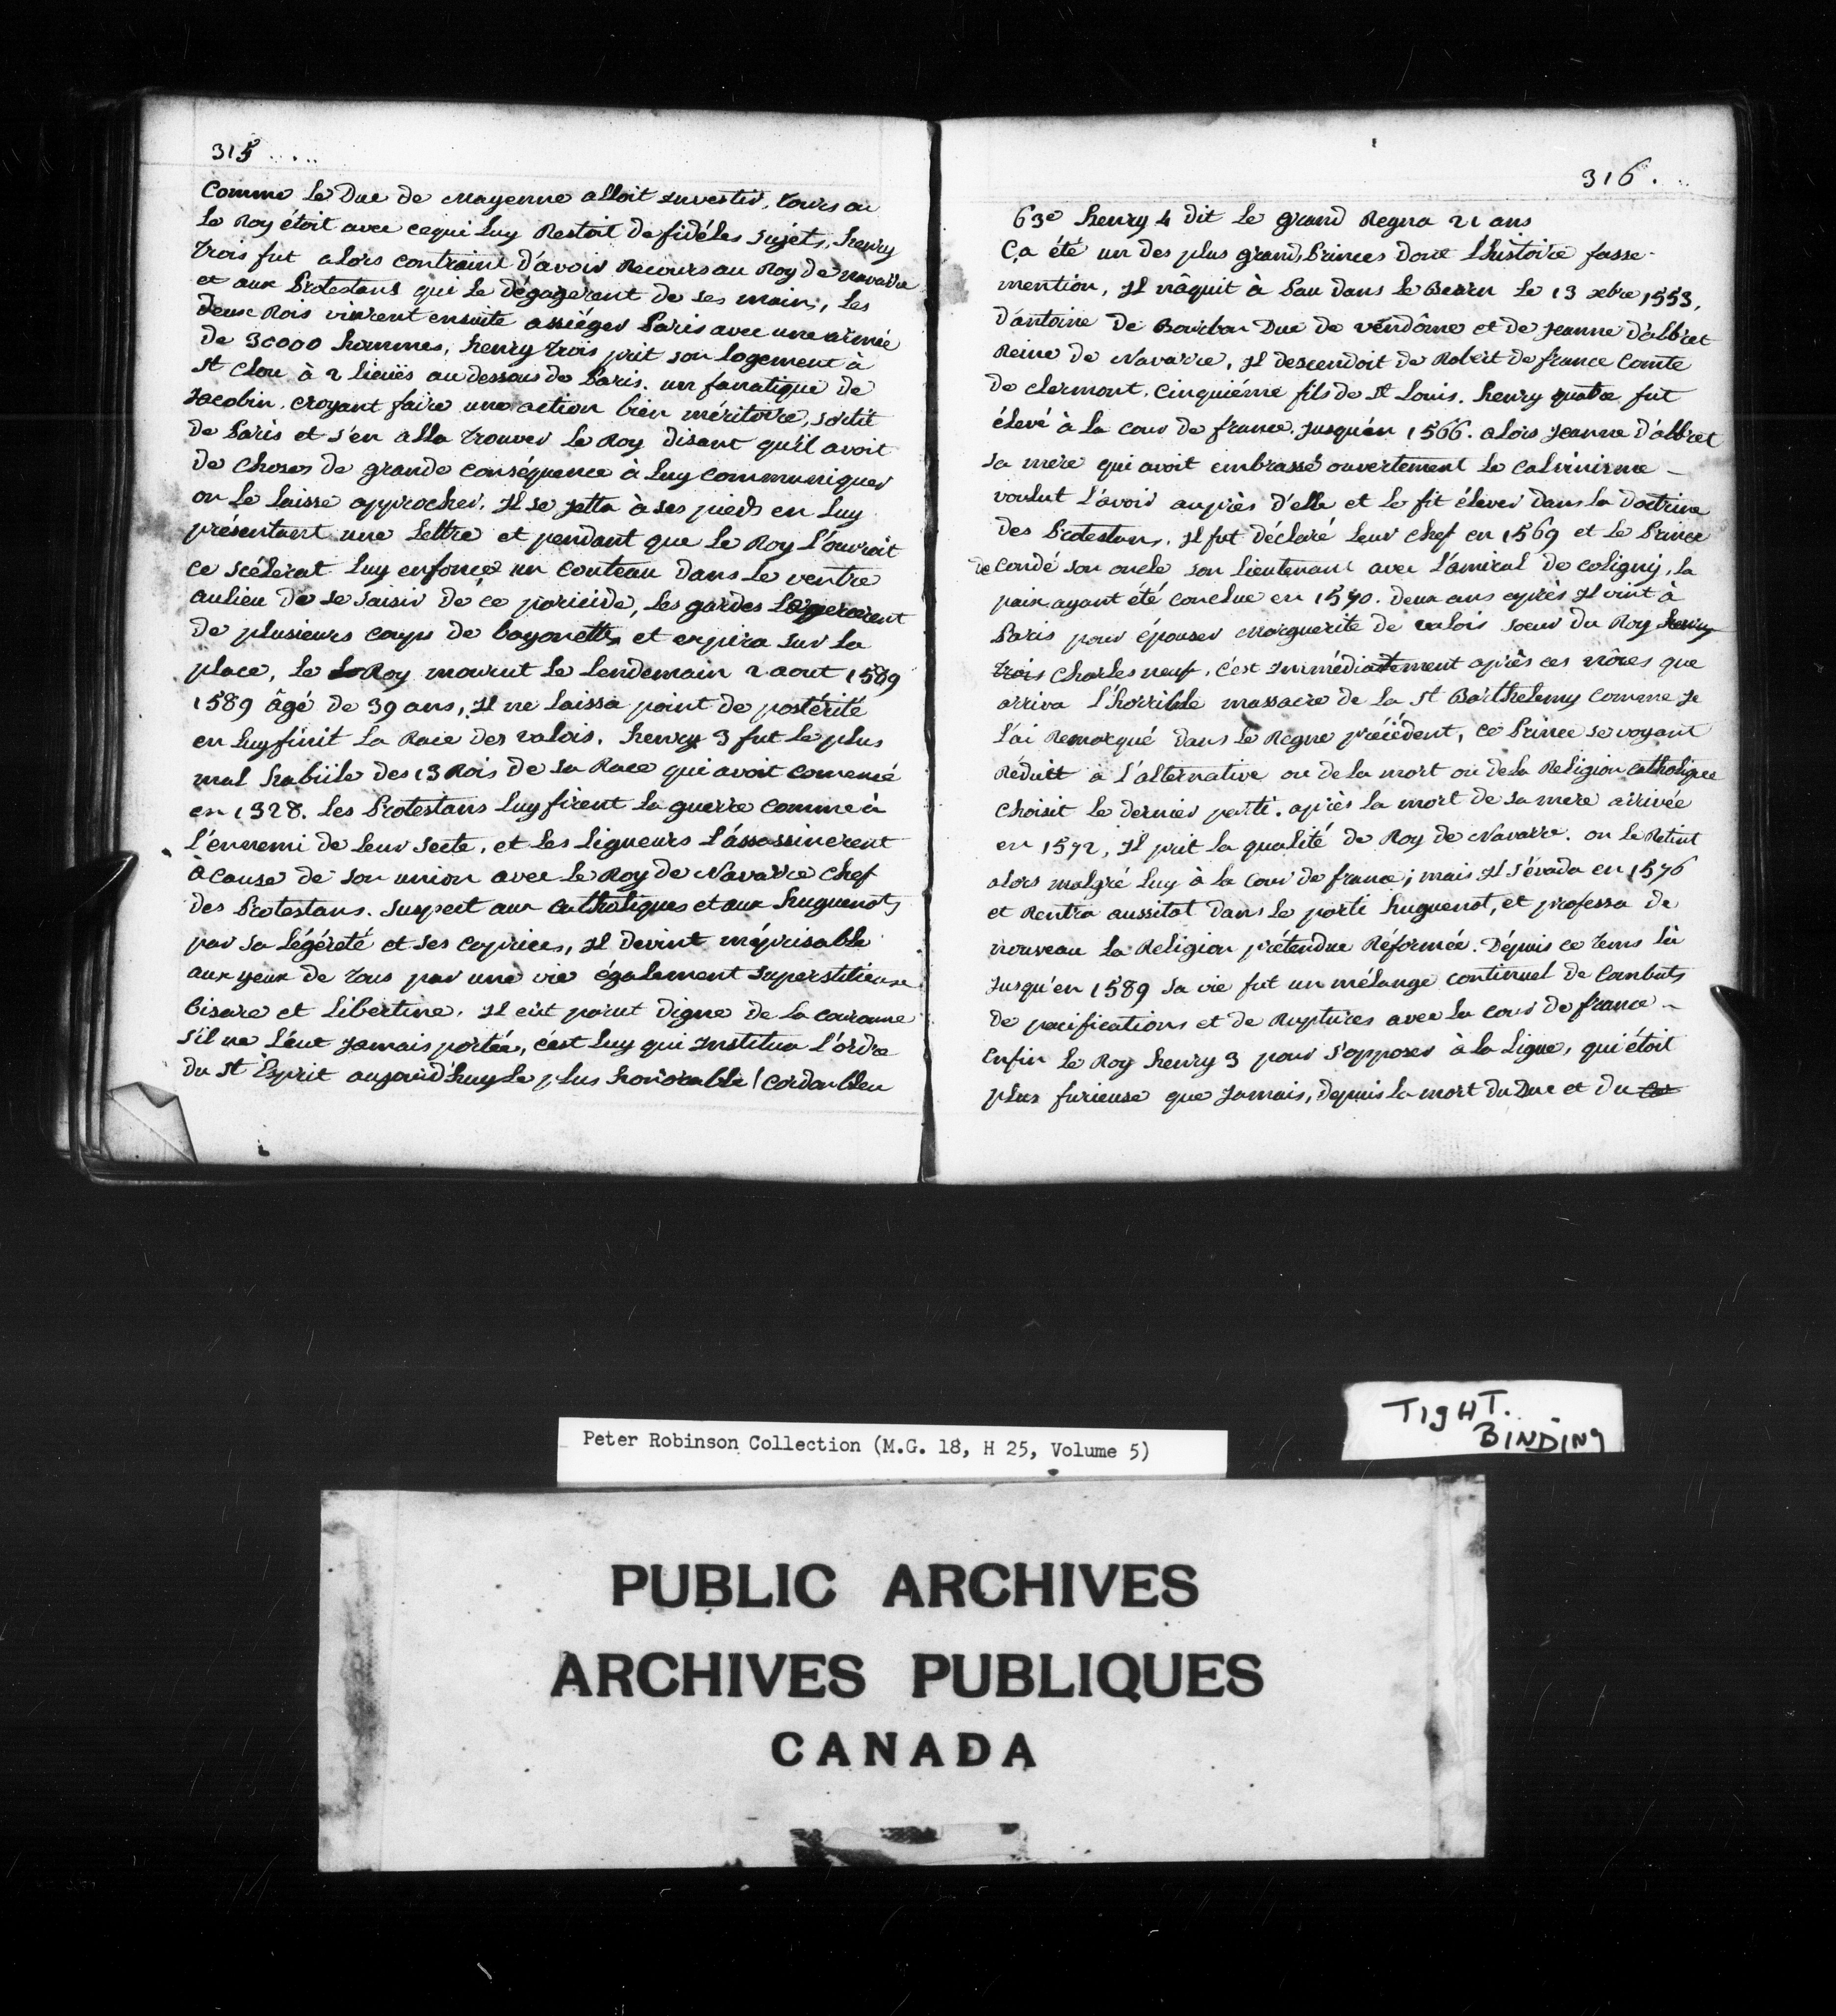 315
Comme le Duc de Mayenne alloit Investir, tours ou
le Roy étoit avec cequi luy Restoit de fidéles sujets, henry
trois fut alors contraint d'avoir Recours au Roy de navarre
et aux Protestans qui le dégagerent de ses mains, les
deux Rois vinrent ensuite assiéger Paris avec une armée
de 30000 hommes, henry trois prit son logement à
st Clou à 2 lieuës au dessous de Paris. un fanatique de
Jacobin, croyant faire une action bien méritoire, sortit
de Paris et s'en alla trouver le Roy disant qu'il avoit
de choses de grande conséquence à luy communiquer
on le laisse approcher. Il se jetta à ses pieds en luy
présentant une lettre et pendant que le Roy l'ouvroit
ce scélérat luy enfonça un couteau dans le ventre
aulieu de se saisir de ce paricide, les gardes le percerent
de plusieurs coups de bayonettes et expira sur la
place, le Roy mourut le lendemain 2 aout 1589
1589 âgé de 39 ans, Il ne laissa point de postérité
en luy finit la Race des valois. henry 3 fut le plus
mal habiile des 13 Rois de sa Race qui avoit comencé
en 1328. les Protestans luy firent la guerre comme à
l'ennemi de leur secte, et les ligueurs l'assassinerent
à cause de son union avec le Roy de Navarre chef
des Protestans. suspect aux catholiques et aux huguenots
par sa légéreté et ses caprices, Il devint méprisable
aux yeux de tous par une vie également superstitieuse
bisare et libertine. Il eut parut digne de la couronne
s'il ne l'eut Jamais portée, c'est luy qui Institua l'ordre
du st Esprit aujourd'huy le plus honorable / cordon bleu
316.
63e henry 4 dit le grand Regna 21 ans
Ça été un des plus grands Princes dont l'histoire fasse
mention, Il nâquit à Pau dans le Bearn le 13 xebre 1553,
d'antoine de Bourbon Duc de vendôme et de Jeanne d'albret
Reine de Navarre, Il descendoit de Robert de france Comte
de clermont, cinquiéme fils de st Louis. henry quatre fut
élevé à la cour de france. Jusqu'en 1566. alors Jeanne d'albret
sa mere qui avoit embrassé ouvertement le calvinisme
voulut l'avoir auprès d'elle et le fit élever dans la doctrine
des Protestans. Il fut déclaré leur chef en 1569 et le Prince
de condé son oncle son lieutenant avec l'amiral de coligny, la
paix ayant été conclue en 1570. deux ans après Il vint à
Paris pour épouser Marguerite de valois soeur du Roy henry
trois Charles neuf. c'est Immédiatement après ces nôces que
arriva l'horrible massacre de la st Barthelemy comme Je
l'ai Remarqué dans le Regne précédent, ce Prince se voyant
Réduit à l'alternative ou de la mort ou de la Religion catholique
choisit le dernier parti. après la mort de sa mere arrivée
en 1572, Il prit la qualité de Roy de Navarre. on le Retint
alors malgré luy à la cour de france; mais Il s'évada en 1576
et Rentra aussitot dans le parti huguenot, et professa de
nouveau la Religion prétendue Réformée. Dépuis ce tems là
Jusqu'en 1589 sa vie fut un mélange continuel de Combats
de pacifications et de Ruptures avec la cour de france
Enfin le Roy henry 3 pour s'opposer à la ligue, qui étoit
plus furieuse que Jamais, depuis la mort du Duc et du
TIGHT.
BINDING
Peter Robinson Collection (M.G. 18, H 25, Volume 5)
PUBLIC ARCHIVES
ARCHIVES PUBLIQUES
CANADA